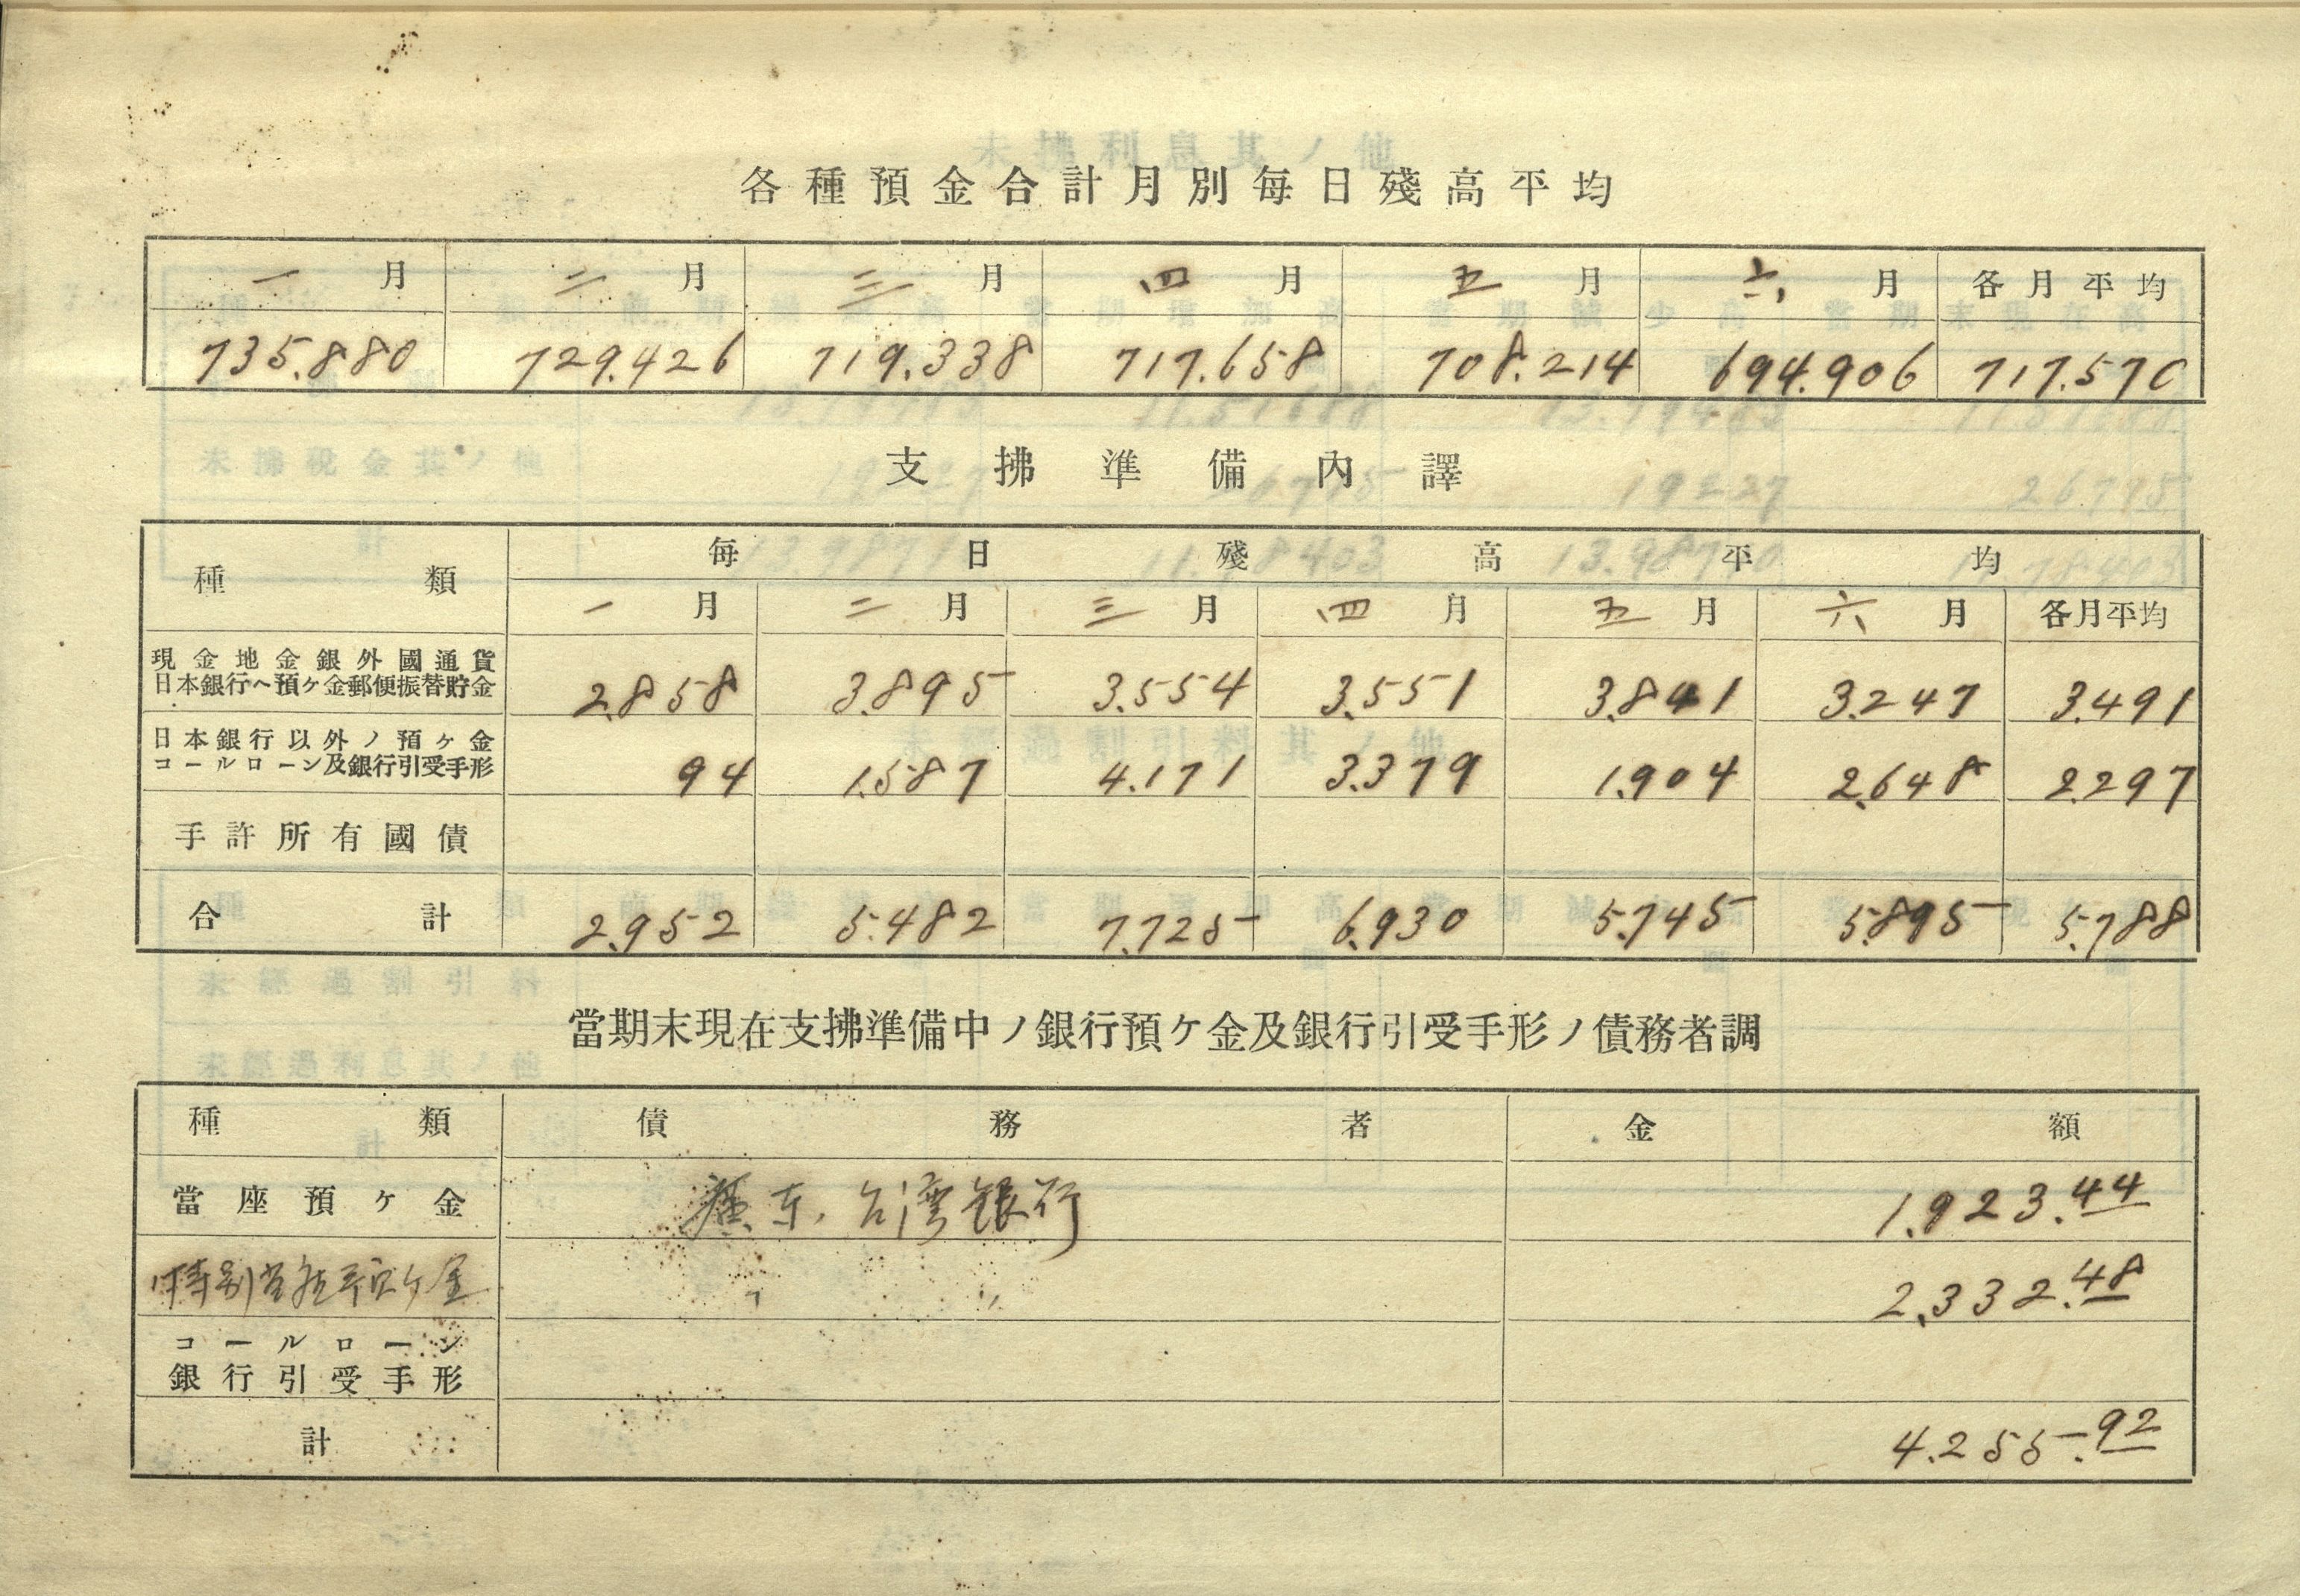 各種預金合計月別每日殘高平均
一月 二月 三月 四月 五月 六月 各月平均
735.880 729.426 719.338 717.658 708.214 694.906 717.570
支拂準備內譯
種類 每日殘高平均
一月 二月 三月 四月 五月 六月 各月平均
現金地金銀外國通貨
日本銀行ヘ預ケ金郵便振替貯金 2.858 3.895 3.554 3.551 3.841 3.247 3.491
日本銀行以外ノ預ケ金
コールローン及銀行引受手形 94 1.587 4.171 3.379 1.904 2.648 2.297
手許所有國債
合計 2.952 5.482 7.725 6.930 5.745 5.895 5.788
當期末現在支拂準備中ノ銀行預ケ金及銀行引受手形ノ債務者調
種類 債務者 金額
當座預ケ金 東、台湾銀行 1.923.44
特別当座預ケ金 〃 〃 2.332.48
コールローン
銀行引受手形
計 4.255.92